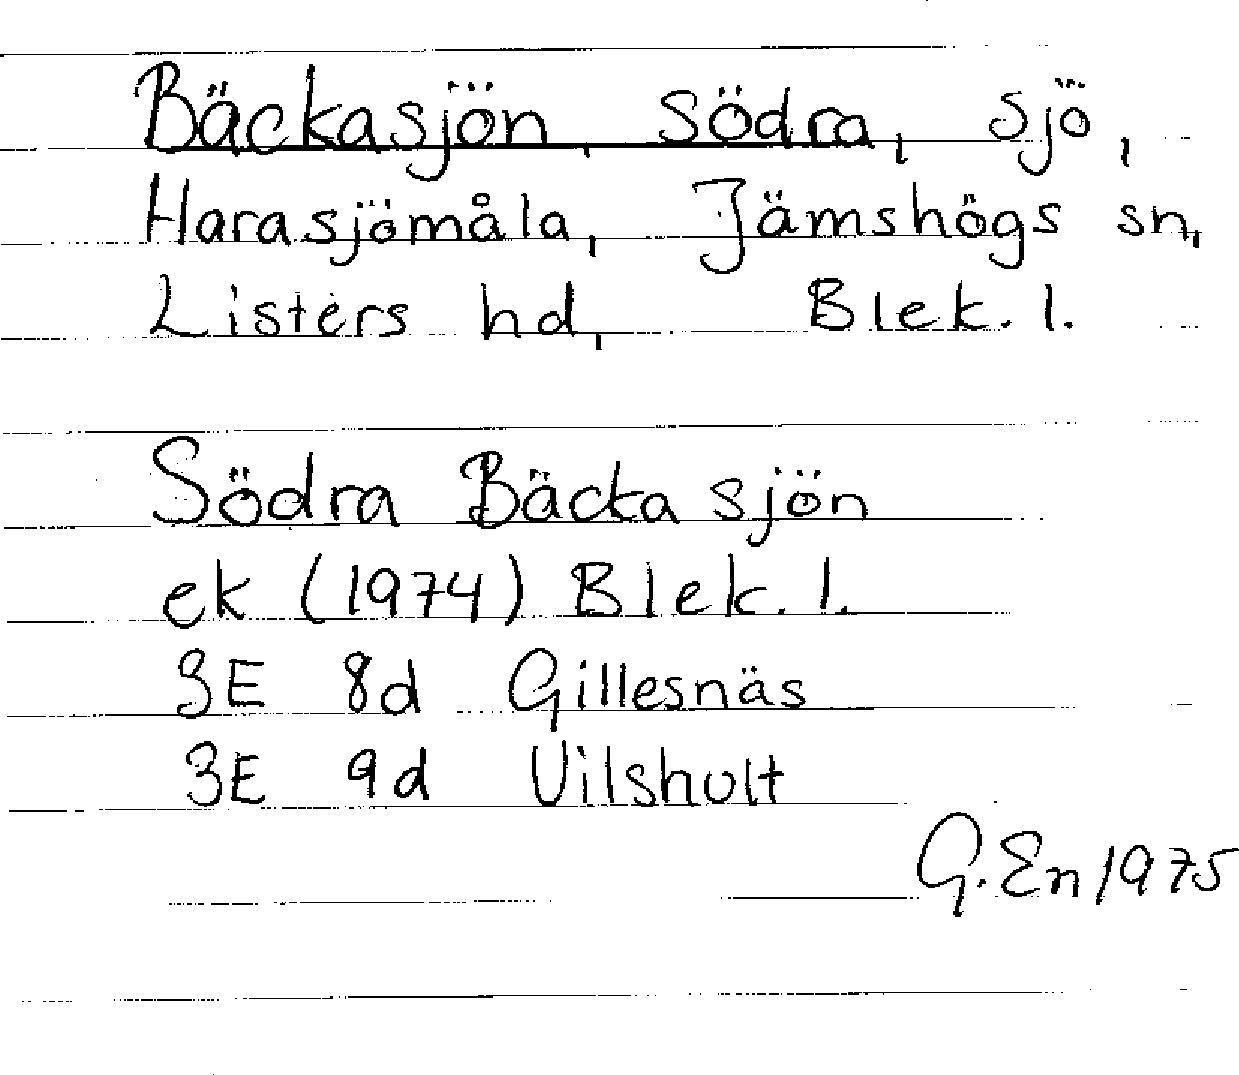 Bäckasjön, Södra, sjö,
Harasjömåla, Jämshögs sn,
Listers hd, Blek. l.
Södra Bäckasjön
ek (1974) Blek. l.
3E 8d Gillesnäs
3E 9d Vilshult
G. En 1975